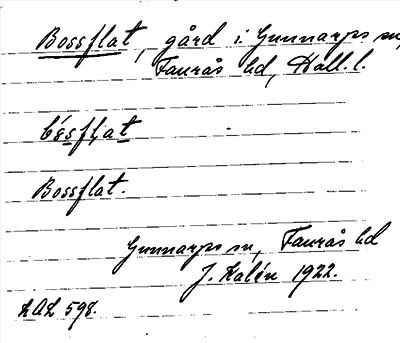 Bossflat, gård i Gunnarps sn,
Faurås hd, Hall. l.
bósflat
Bossflat.
Gunnarps sn, Faurås hd
J. Kalén 1922.
LAL 598.